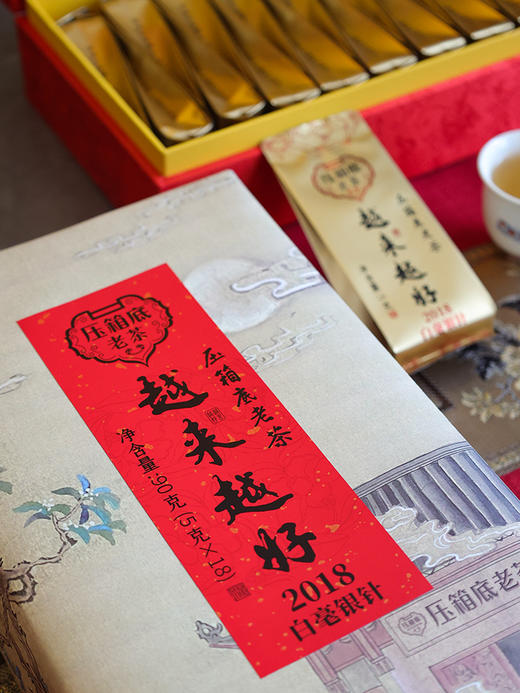 压箱底
老茶
压箱底老茶
越来越好
净含量:90克(5克×18)
2018
白毫银针
压箱底老茶
压箱底
老茶
压箱底老茶
越来越好
2018
白毫银针